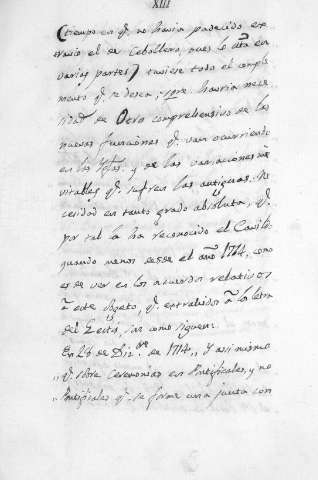 XIII
(tiempo en q.e no havia padecido ex-
travio el de Ceballero, pues lo cita en
varias partes) tuviese todo el comple-
mento q.e se desea; spre havria nece-
sidad de Otro comprehensivo de las
nuevas funciones q.e van ocurriendo
en las Ygl.as y de las variaciones ine-
vitables q.e sufren las antiguas. Ne-
cesidad en tanto grado absoluta, q.e
por tal la ha reconocido el Cavildo
quando menos desde el año 1714, como
es de ver en los acuerdos relativos
a este objeto, q.e extrahidos a la letra
del son como siguen:
En 28 de Diz.bre de 1714,, Y asi mismo
,, q.e sobre Ceremonias en Pontificales, y no
,, Pontificales q.e se forme una junta con